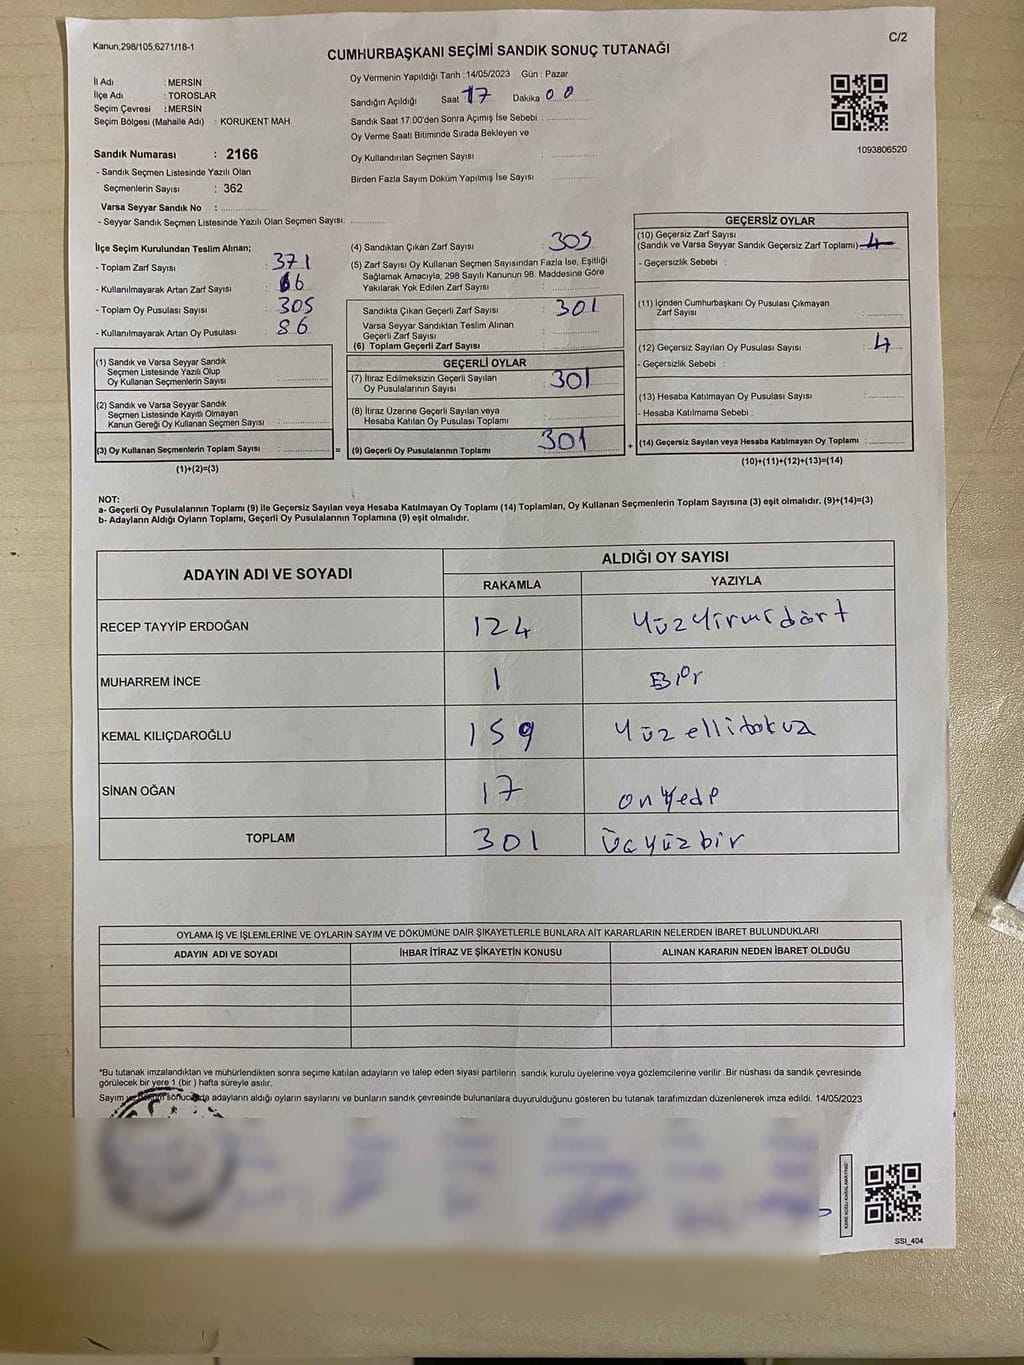 Kanun,298/105,6271/18-1
C/2
CUMHURBAŞKANI SEÇİMİ SANDIK SONUÇ TUTANAĞI
İl Adı : MERSİN
İlçe Adı : TOROSLAR
Seçim Çevresi : MERSİN
Seçim Bölgesi (Mahalle Adı) : KORUKENT MAH.
Sandık Numarası : 2166
- Sandık Seçmen Listesinde Yazılı Olan
Seçmenlerin Sayısı : 362
Varsa Seyyar Sandık No :
- Seyyar Sandık Seçmen Listesinde Yazılı Olan Seçmen Sayısı:
Oy Vermenin Yapıldığı Tarih : 14/05/2023 Gün : Pazar
Sandığın Açıldığı Saat 17 Dakika 00
Sandık Saat 17:00'den Sonra Açımış İse Sebebi :
Oy Verme Saati Bitiminde Sırada Bekleyen ve
Oy Kullandırılan Seçmen Sayısı :
Birden Fazla Sayım Döküm Yapılmış İse Sayısı :
1093806520
İlçe Seçim Kurulundan Teslim Alınan;
- Toplam Zarf Sayısı : 371
- Kullanılmayarak Artan Zarf Sayısı : 66
- Toplam Oy Pusulası Sayısı : 305
- Kullanılmayarak Artan Oy Pusulası : 86
(1) Sandık ve Varsa Seyyar Sandık
Seçmen Listesinde Yazılı Olup
Oy Kullanan Seçmenlerin Sayısı :
(2) Sandık ve Varsa Seyyar Sandık
Seçmen Listesinde Kayıtlı Olmayan
Kanun Gereği Oy Kullanan Seçmen Sayısı :
(3) Oy Kullanan Seçmenlerin Toplam Sayısı : =
(1)+(2)=(3)
(4) Sandıktan Çıkan Zarf Sayısı : 305
(5) Zarf Sayısı Oy Kullanan Seçmen Sayısından Fazla İse, Eşitliği
Sağlamak Amacıyla, 298 Sayılı Kanunun 98. Maddesine Göre
Yakılarak Yok Edilen Zarf Sayısı :
Sandıkta Çıkan Geçerli Zarf Sayısı : 301
Varsa Seyyar Sandıktan Teslim Alınan
Geçerli Zarf Sayısı :
(6) Toplam Geçerli Zarf Sayısı :
GEÇERLİ OYLAR
(7) İtiraz Edilmeksizin Geçerli Sayılan
Oy Pusulalarının Sayısı : 301
(8) İtiraz Üzerine Geçerli Sayılan veya
Hesaba Katılan Oy Pusulası Toplamı :
(9) Geçerli Oy Pusulalarının Toplamı : 301 +
GEÇERSİZ OYLAR
(10) Geçersiz Zarf Sayısı
(Sandık ve Varsa Seyyar Sandık Geçersiz Zarf Toplamı) : 4
- Geçersizlik Sebebi :
(11) İçinden Cumhurbaşkanı Oy Pusulası Çıkmayan
Zarf Sayısı :
(12) Geçersiz Sayılan Oy Pusulası Sayısı : 4
- Geçersizlik Sebebi :
(13) Hesaba Katılmayan Oy Pusulası Sayısı :
- Hesaba Katılmama Sebebi :
(14) Geçersiz Sayılan veya Hesaba Katılmayan Oy Toplamı :
(10)+(11)+(12)+(13)=(14)
NOT:
a- Geçerli Oy Pusulalarının Toplamı (9) ile Geçersiz Sayılan veya Hesaba Katılmayan Oy Toplamı (14) Toplamları, Oy Kullanan Seçmenlerin Toplam Sayısına (3) eşit olmalıdır. (9)+(14)=(3)
b- Adayların Aldığı Oyların Toplamı, Geçerli Oy Pusulalarının Toplamına (9) eşit olmalıdır.
ADAYIN ADI VE SOYADI
ALDIĞI OY SAYISI
RAKAMLA YAZIYLA
RECEP TAYYİP ERDOĞAN 124 Yüzyirmidört
MUHARREM İNCE 1 Bir
KEMAL KILIÇDAROĞLU 159 Yüz ellidokuz
SİNAN OĞAN 17 on yedi
TOPLAM 301 üçyüzbir
OYLAMA İŞ VE İŞLEMLERİNE VE OYLARIN SAYIM VE DÖKÜMÜNE DAİR ŞİKAYETLERLE BUNLARA AİT KARARLARIN NELERDEN İBARET BULUNDUKLARI
ADAYIN ADI VE SOYADI İHBAR İTİRAZ VE ŞİKAYETİN KONUSU ALINAN KARARIN NEDEN İBARET OLDUĞU
*Bu tutanak imzalandıktan ve mühürlendikten sonra seçime katılan adayların ve talep eden siyasi partilerin sandık kurulu üyelerine veya gözlemcilerine verilir .Bir nüshası da sandık çevresinde
görülecek bir yere 1 (bir ) hafta süreyle asılır.
Sayım sonucunda adayların aldığı oyların sayılarını ve bunların sandık çevresinde bulunanlara duyurulduğunu gösteren bu tutanak tarafımızdan düzenlenerek imza edildi. 14/05/2023
KARE KODU KARALAMAYINIZ!
SSI_404